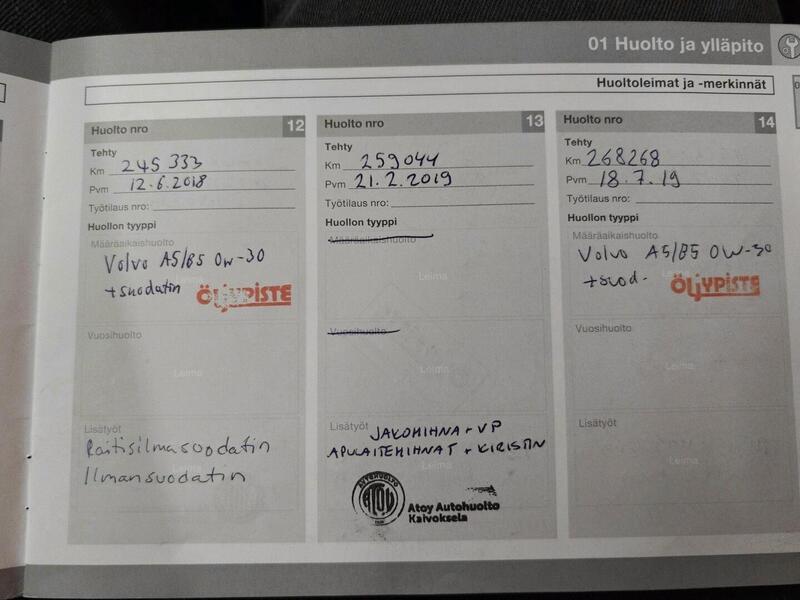 01 Huolto ja ylläpito
Huoltoleimat ja -merkinnät
Huolto nro 12
Tehty
Km 245 333
Pvm 12.6.2018
Työtilaus nro:
Huollon tyyppi
Määräaikaishuolto
Volvo A5/B5 0w-30
+suodatin
ÖLJYPISTE
Vuosihuolto
Leima
Lisätyöt
Raitisilmasuodatin
Ilmansuodatin
Huolto nro 13
Tehty
Km 259044
Pvm 21.2.2019
Työtilaus nro:
Huollon tyyppi
Määräaikaishuolto
Leima
Vuosihuolto
Leima
Lisätyöt JAKOHIHNA + VP
APULAITEHIHNAT + KIRISTIN
Leima
AUTOHUOLTO
ATOY
Atoy Autohuolto
Kaivoksela
Huolto nro 14
Tehty
Km 268268
Pvm 18.7.19
Työtilaus nro:
Huollon tyyppi
Määräaikaishuolto
Volvo A5/B5 0W-30
+suod.
ÖLJYPISTE
Vuosihuolto
Leima
Lisätyöt
Leima